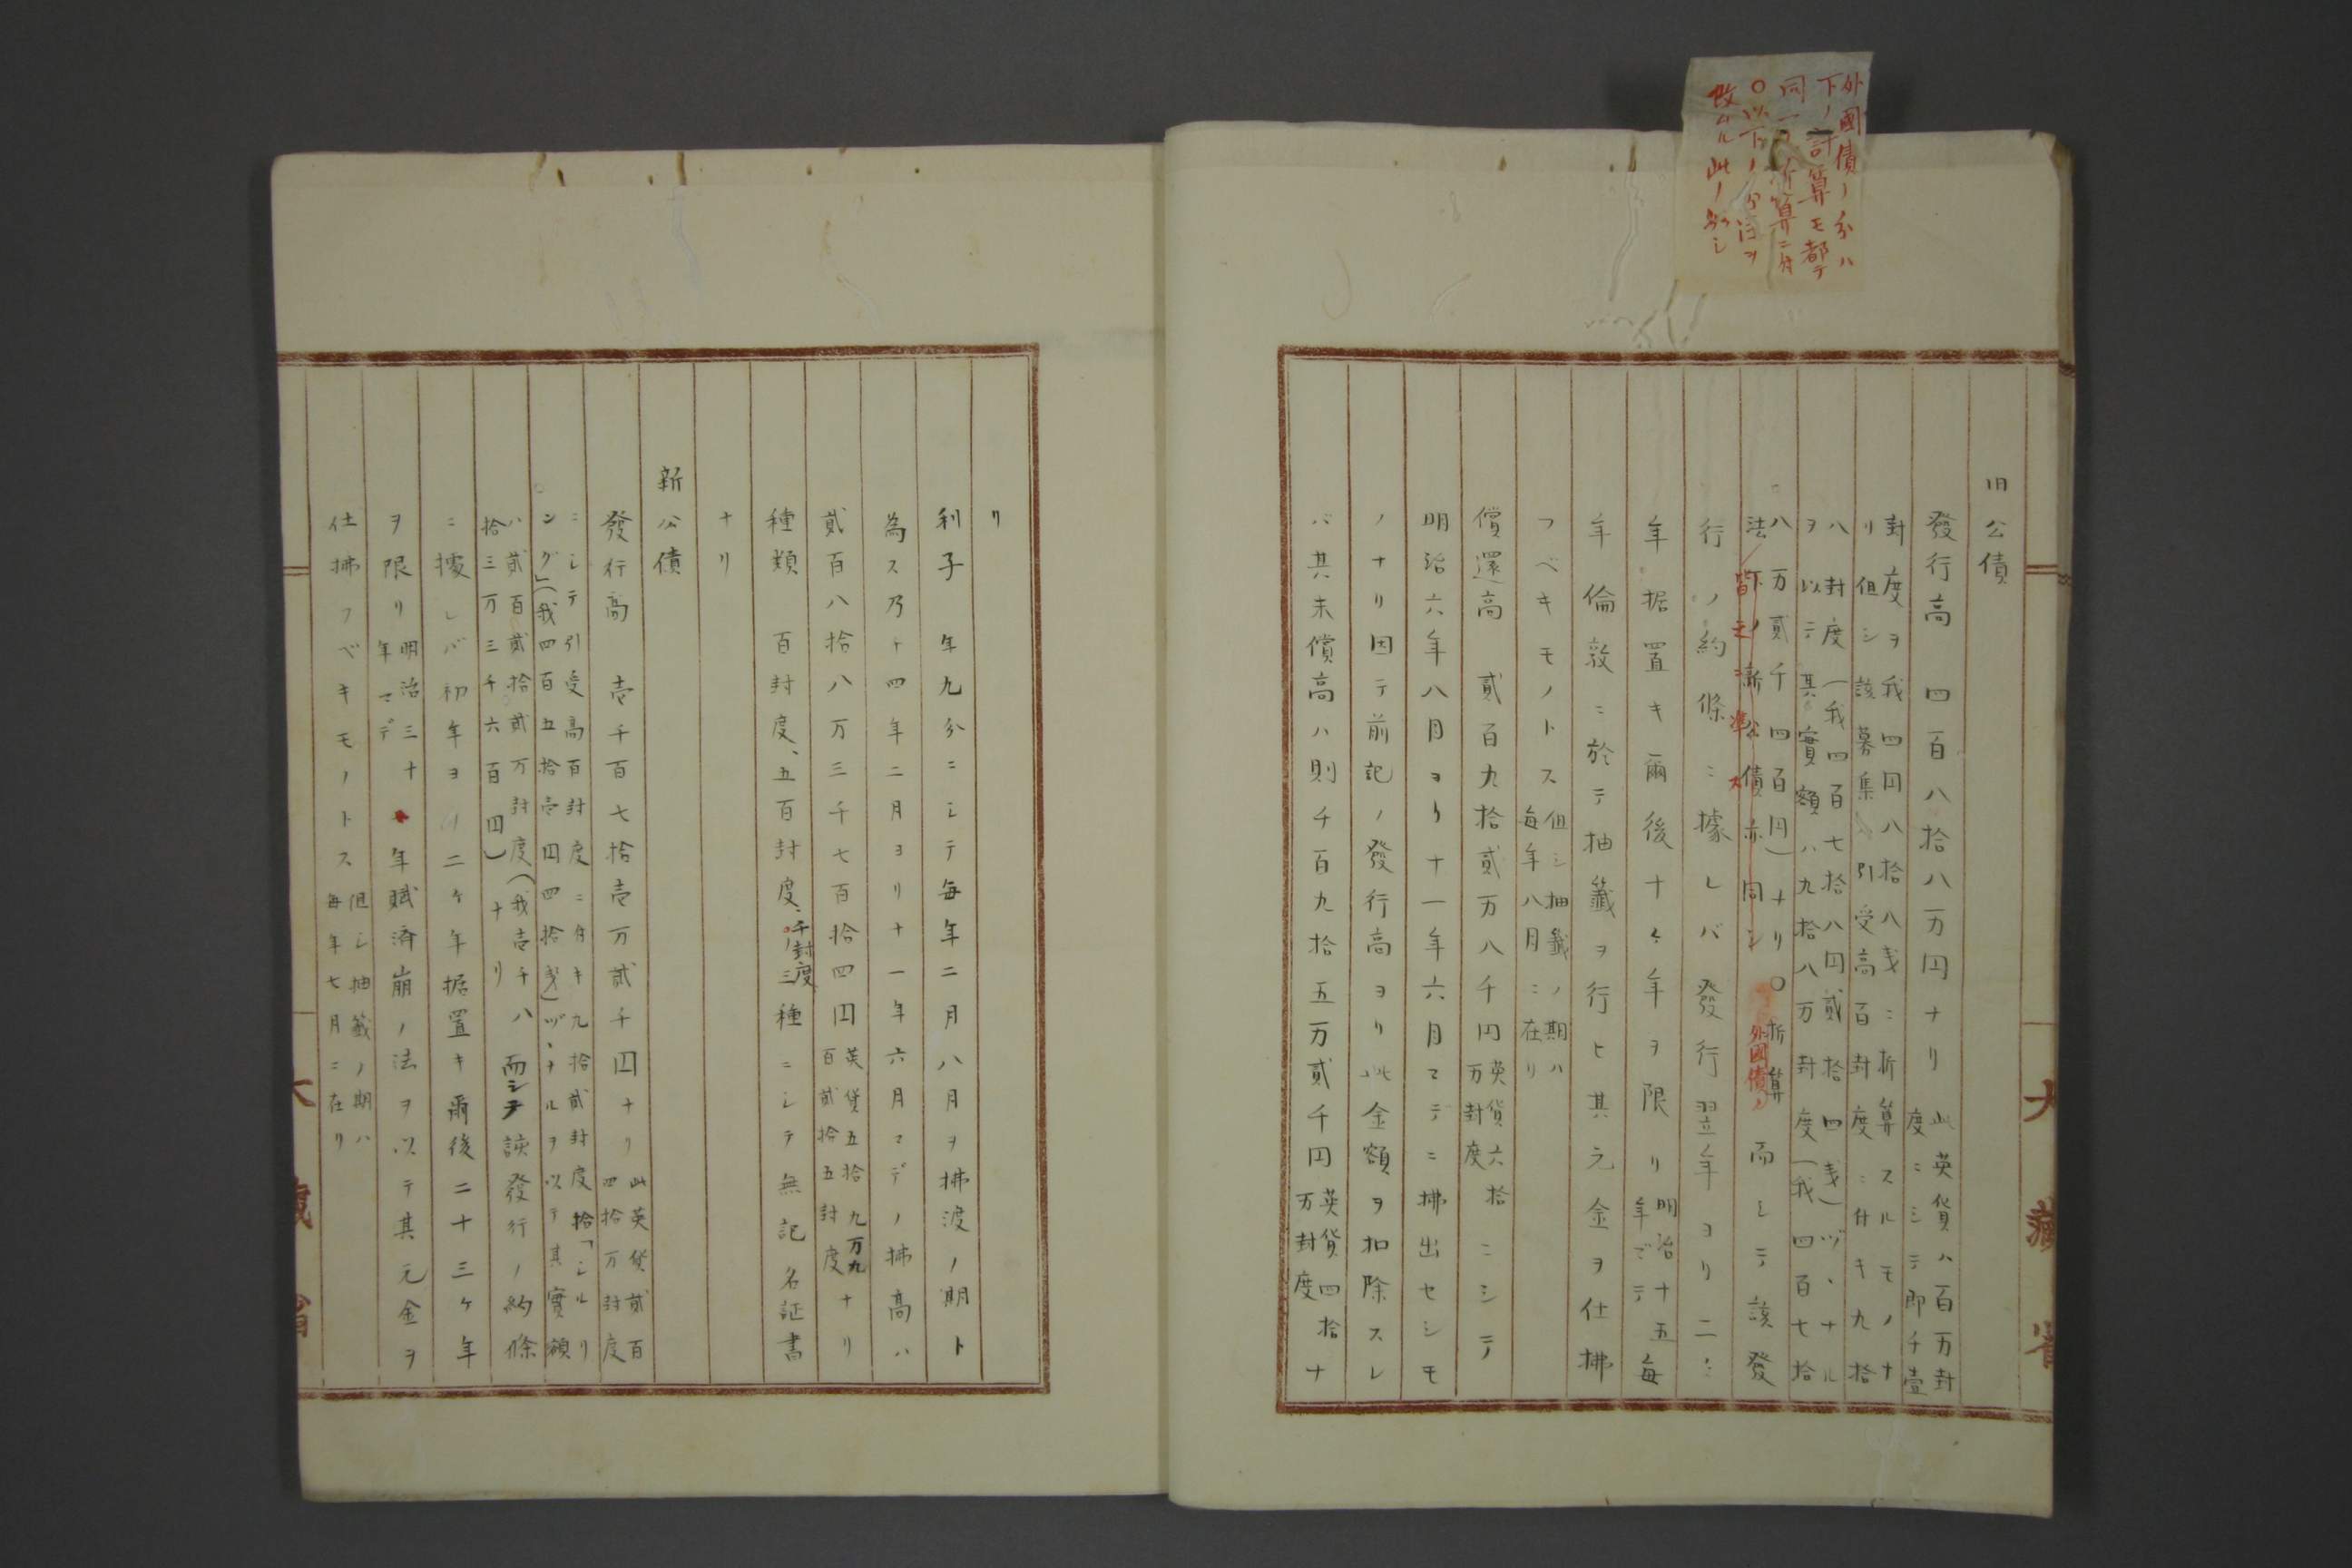 外國債ノ分ハ
下ノ計算モ都テ
同一
○以下ノ分注ヲ
改ムル此ノ如シ
旧公債
發行高 四百八拾八万円ナリ 此英貨ハ百万封
度ニシテ即千壹
封度ヲ我四円八拾八戔ニ折算スルモノナ
リ但シ該募集引受高百封度ニ付キ九拾
八封度(我四百七拾八円貳拾四戔)ヅヽナル
ヲ以テ其實額ハ九拾八万封度(我四百七拾
八万貳千四百円)ナリ○折算
法下ノ新公債亦同シ 外國債ノ
皆之ニ準ス
而シテ該發
行ノ約條ニ據レバ發行翌年ヨリ二ヶ
年据置キ爾後十ヶ年ヲ限リ 明治十五
年マデ 每
年倫敦ニ於テ抽籤ヲ行ヒ其元金ヲ仕拂
フベキモノトス 但シ抽籤ノ期ハ
每年八月ニ在リ
償還高 貳百九拾貳万八千円 英貨六拾
万封度 ニシテ
明治六年八月ヨリ十一年六月マデニ拂出セシモ
ノナリ因テ前記ノ發行高ヨリ此金額ヲ扣除スレ
バ其未償高ハ則千百九拾五万貳千円 英貨四拾
万封度 ナ
リ
利子 年九分ニシテ每年二月八月ヲ拂渡ノ期ト
為ス乃十四年二月ヨリ十一年六月マデノ拂高ハ
貳百八拾八万三千七百拾四円 英貨五拾九万九
百貳拾五封度 ナリ
種類 百封度、五百封度、千封度ノ三種ニシテ無記名証書
ナリ
新公債
發行高 壱千百七拾壱万貳千円ナリ 此英貨貳百
四拾万封度
ニシテ引受高百封度ニ付キ九拾貳封度拾「シルリ
ング」(我四百五拾壱円四拾戔)ヅヽナルヲ以テ其實額
ハ貳百貳拾貳万封度(我壱千八
拾三万三千六百円)ナリ
而シテ該發行ノ約條
ニ據レバ初年ヨリ二ヶ年据置キ爾後二十三ヶ年
ヲ限リ 明治三十
年マデ 年賦済崩ノ法ヲ以テ其元金ヲ
仕拂フベキモノトス 但シ抽籤ノ期ハ
每年七月ニ在リ
大藏省